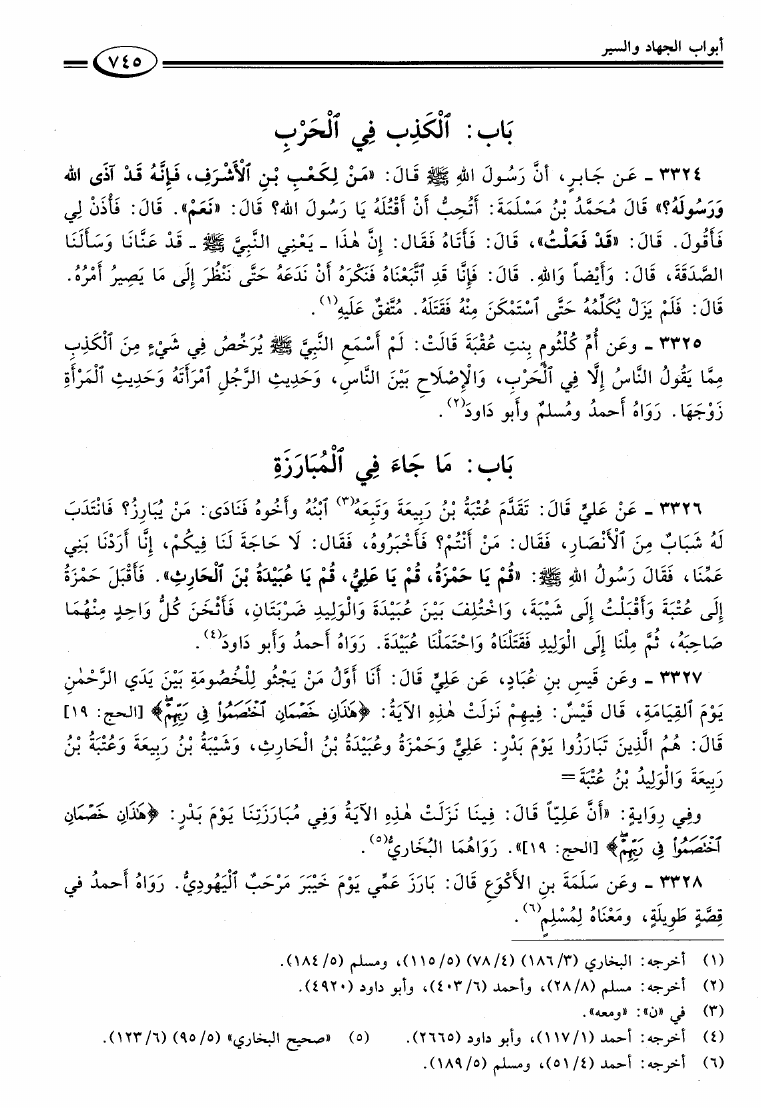 أبواب الجهاد والسير
٧٤٥
بَاب: ٱلْكَذِب فِي ٱلْحَرْبِ
٣٣٢٤ ـ عَن جَابِرٍ، أنَّ رَسُولَ اللهِ ﷺ قَالَ: «مَنْ لِكَعْبِ بْنِ ٱلْأَشْرَفِ، فَإِنَّهُ قَدْ آذَى الله
وَرَسُولَهُ؟» قَالَ مُحَمَّدُ بْنُ مَسْلَمَةَ: أَتُحِبُّ أَنْ أَقْتُلَهُ يَا رَسُولَ الله؟ قَالَ: «نَعَمْ». قَالَ: فَأْذَنْ لِي
فَأَقُولَ. قَالَ: «قَدْ فَعَلْتُ»، قَالَ: فَأَتَاهُ فَقَال: إِنَّ هٰذَا ـ يَعْنِي النَّبِيَّ ﷺ ـ قَدْ عَنَّانَا وَسَأَلَنَا
الصَّدَقَةَ، قَالَ: وَأَيْضاً وَاللهِ. قَالَ: فَإِنَّا قَدِ ٱتَّبَعْنَاهُ فَنَكْرَهُ أَنْ نَدَعَهُ حَتَّى نَنْظُرَ إِلَى مَا يَصِيرُ أَمْرُهُ.
قَالَ: فَلَمْ يَزَلْ يُكَلِّمُهُ حَتَّى ٱسْتَمْكَنَ مِنْهُ فَقَتَلَهُ. مُتَّفقٌ عَلَيهِ(١).
٣٣٢٥ ـ وعَن أُمِّ كُلْثُومِ بِنتِ عُقْبَةَ قَالَتْ: لَمْ أَسْمَعِ النَّبِيَّ ﷺ يُرَخِّصُ فِي شَيْءٍ مِنَ ٱلْكَذِبِ
مِمَّا يَقُولُ النَّاسُ إِلَّا فِي ٱلْحَرْبِ، وَالْإِصْلَاحِ بَيْنَ النَّاسِ، وَحَدِيثِ الرَّجُلِ ٱمْرَأَتَهُ وَحَدِيثِ ٱلْمَرْأَةِ
زَوْجَهَا. رَوَاهُ أحمدُ ومُسلمٌ وأَبو دَاودَ(٢).
بَاب: مَا جَاءَ فِي ٱلْمُبَارَزَةِ
٣٣٢٦ ـ عَنْ عَليٍّ قَالَ: تَقَدَّمَ عُتْبَةُ بْنُ رَبِيعَةَ وَتَبِعَهُ(٣) ٱبْنُهُ وأَخُوهُ فَنَادَى: مَنْ يُبَارِزُ؟ فَانْتَدَبَ
لَهُ شَبَابٌ مِنَ ٱلْأَنْصَارِ، فَقَالَ: مَنْ أَنْتُمْ؟ فَأَخْبَرُوهُ، فَقَالَ: لَا حَاجَةَ لَنَا فِيكُمْ، إِنَّا أَرَدْنَا بَنِي
عَمِّنَا، فَقَالَ رَسُولُ اللهِ ﷺ: «قُمْ يَا حَمْزَةُ، قُم يَا عَلِيُّ، قُم يَا عُبَيْدَةُ بْنَ ٱلْحَارِثِ». فَأَقْبَلَ حَمْزَةُ
إِلَى عُتْبَةَ وَأَقْبَلْتُ إِلَى شَيْبَةَ، وَاخْتُلِفَ بَيْنَ عُبَيْدَةَ وَالْوَلِيدِ ضَرْبَتَانِ، فَأَثْخَنَ كُلُّ وَاحِدٍ مِنْهُمَا
صَاحِبَهُ، ثُمَّ مِلْنَا إِلَى الْوَلِيدِ فَقَتَلْنَاهُ وَاحْتَمَلْنَا عُبَيْدَةَ. رَوَاهُ أَحمدُ وَأَبو دَاودَ(٤).
٣٣٢٧ ـ وعَن قَيسِ بنِ عُبَادٍ، عَن عَليٍّ قَالَ: أَنَا أَوَّلُ مَنْ يَجْثُو لِلْخُصُومَةِ بَيْنَ يَدَيِ الرَّحْمٰنِ
يَوْمَ القِيَامَةِ، قَال قَيْسٌ: فِيهِمْ نَزَلَتْ هٰذِهِ الآيَةُ: ﴿هَٰذَانِ خَصْمَانِ ٱخْتَصَمُوا۟ فِى رَبِّهِمْۖ﴾ [الحج: ١٩]
قَالَ: هُمُ الَّذِينَ تَبَارَزُوا يَوْمَ بَدْرٍ: عَلِيٌّ وَحَمْزَةُ وعُبَيْدَةُ بْنُ الْحَارِثِ، وَشَيْبَةُ بْنُ رَبِيعَةَ وَعُتْبَةُ بْنُ
رَبِيعَةَ وَالْوَلِيدُ بْنُ عُتْبَةَ=
وفِي رِوَايةٍ: «أَنَّ عَلِيّاً قَالَ: فِينَا نَزَلَتْ هٰذِهِ الآيَةُ وَفِي مُبَارَزَتِنَا يَوْمَ بَدْرٍ: ﴿هَٰذَانِ خَصْمَانِ
ٱخْتَصَمُوا۟ فِى رَبِّهِمْۖ﴾ [الحج: ١٩]». رَوَاهُمَا البُخَاريُّ(٥).
٣٣٢٨ ـ وعَن سَلَمَةَ بنِ الأَكْوَعِ قَالَ: بَارَزَ عَمِّي يَوْمَ خَيْبَرَ مَرْحَبٌ ٱلْيَهُودِيُّ. رَوَاهُ أَحمدُ في
قِصَّةٍ طَوِيلَةٍ، ومَعْنَاهُ لِمُسْلِمٍ(٦).
(١) أخرجه: البخاري (١٨٦/٣) (٧٨/٤) (١١٥/٥)، ومسلم (١٨٤/٥).
(٢) أخرجه: مسلم (٢٨/٨)، وأحمد (٤٠٣/٦)، وأبو داود (٤٩٢٠).
(٣) في «ن»: «ومعه».
(٤) أخرجه: أحمد (١١٧/١)، وأبو داود (٢٦٦٥). (٥) «صحيح البخاري» (٩٥/٥) (١٢٣/٦).
(٦) أخرجه: أحمد (٥١/٤)، ومسلم (١٨٩/٥).